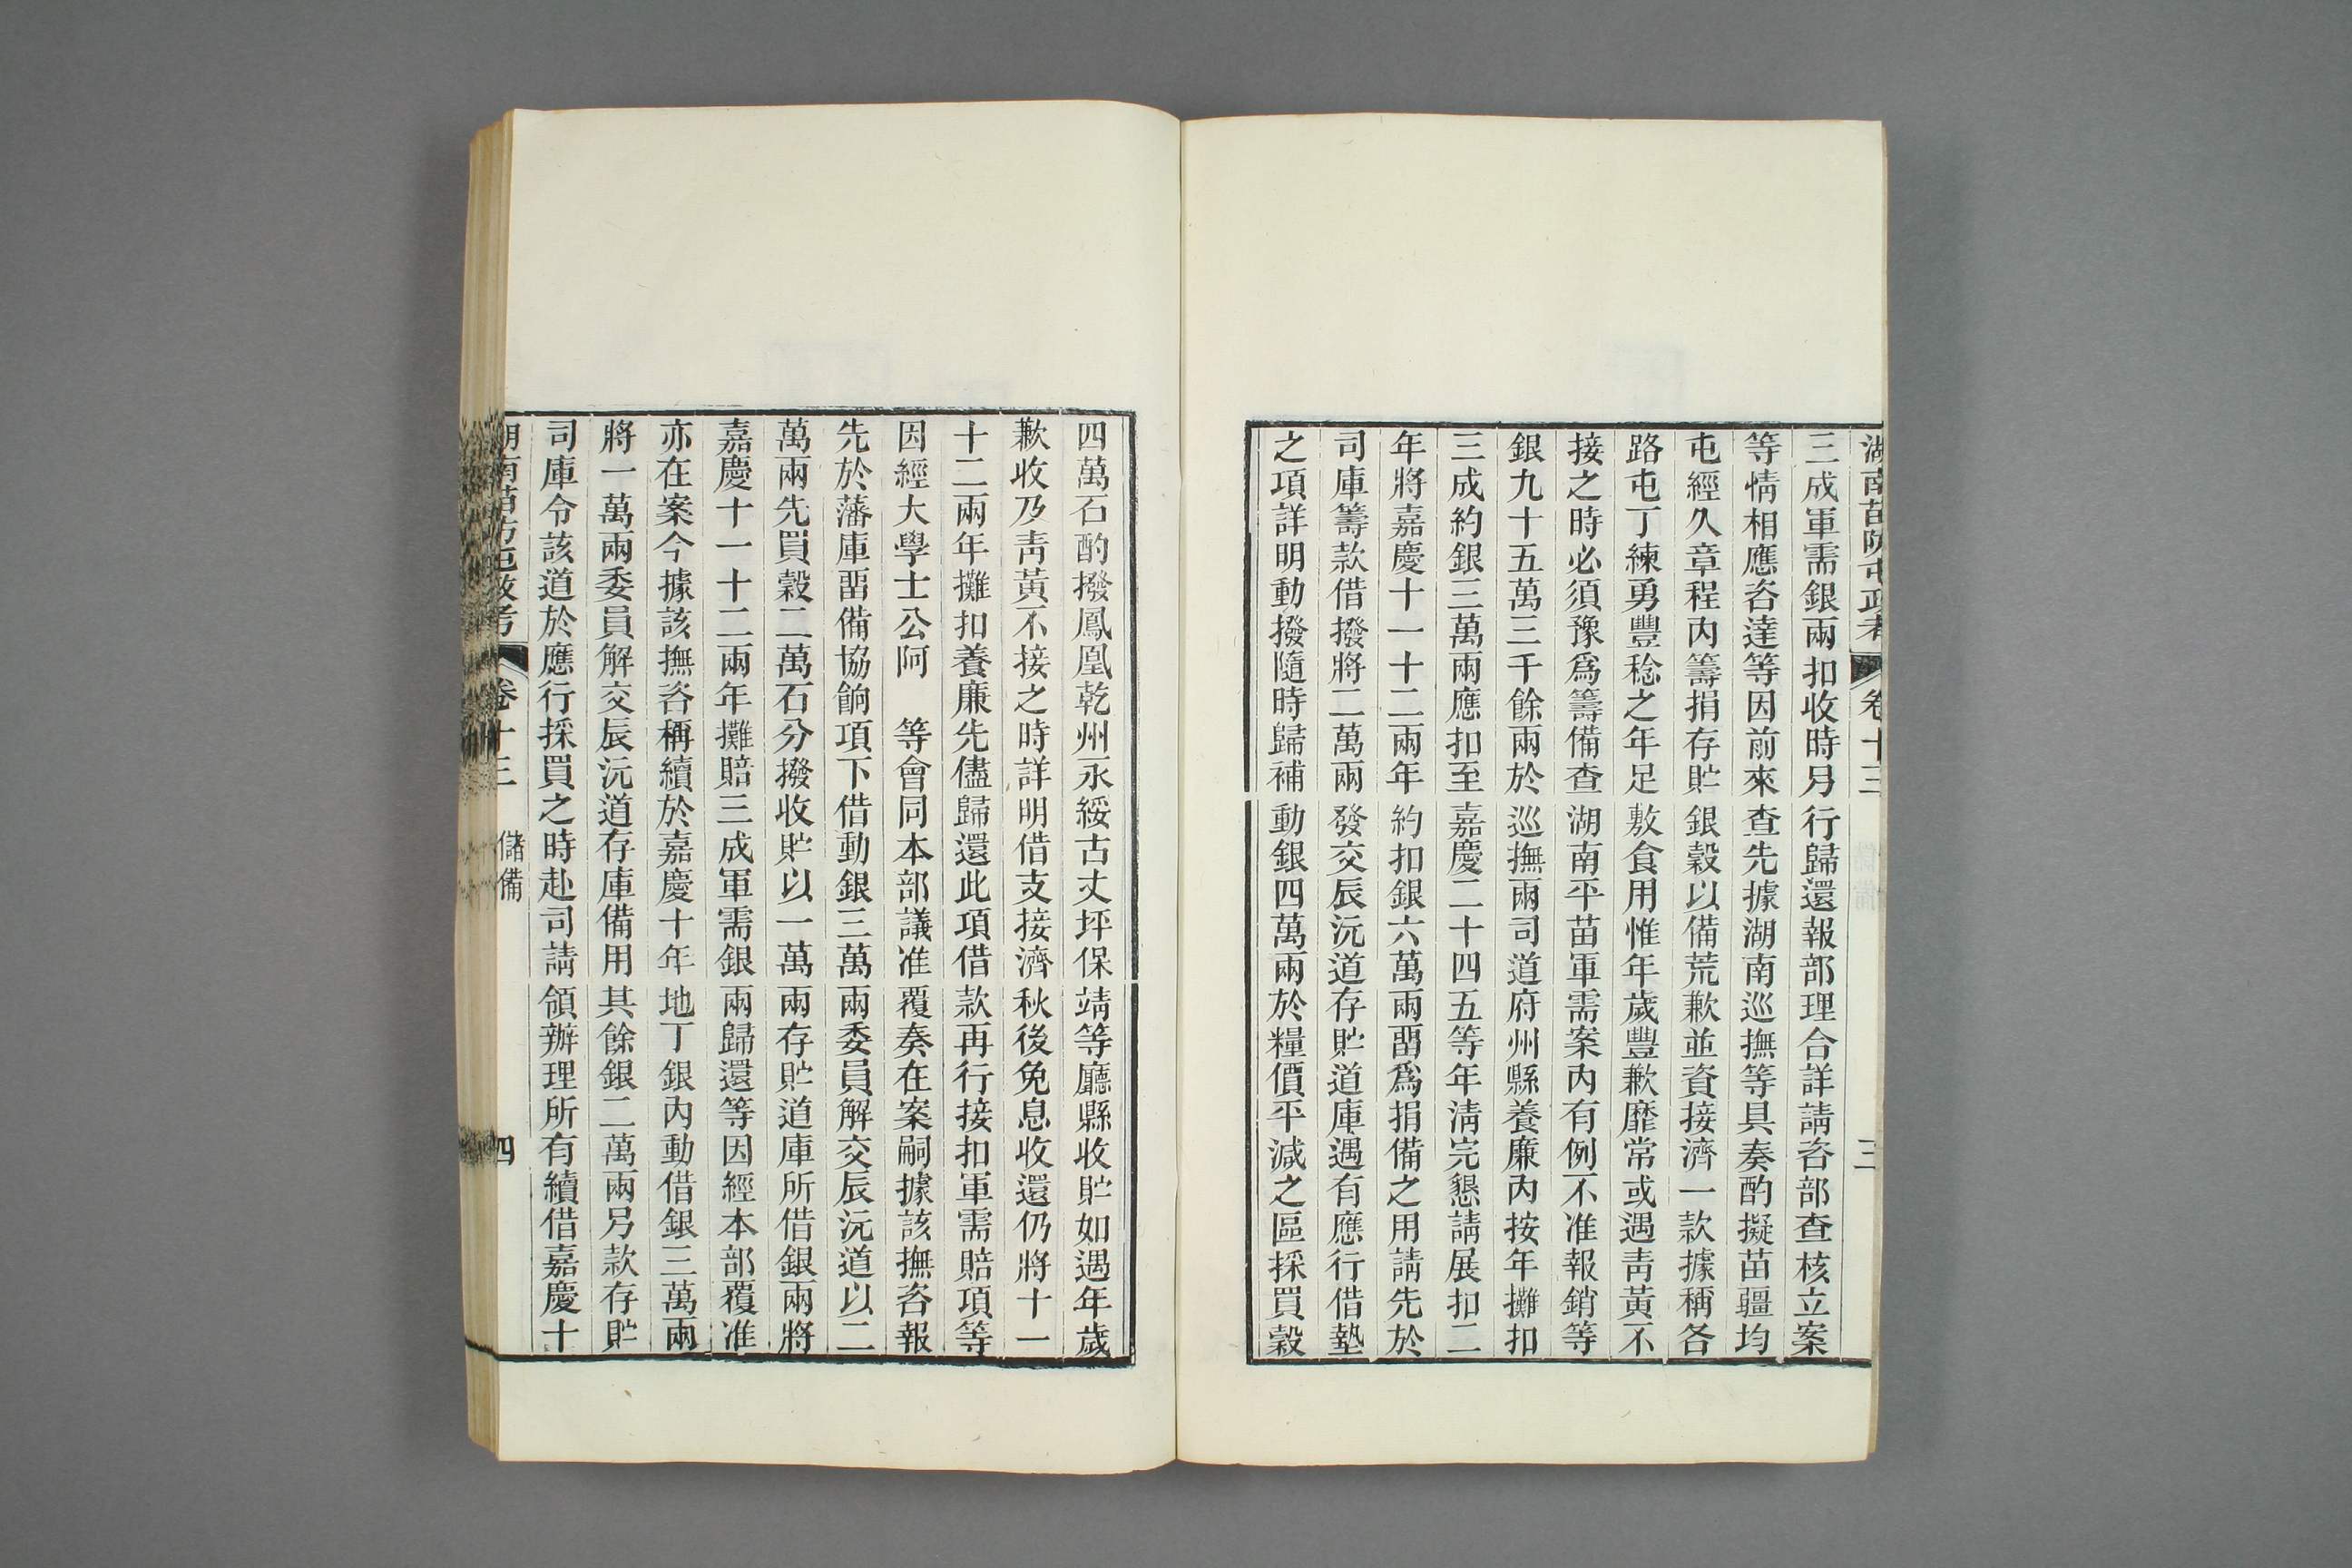 湖南苗防屯政考 卷十三 三
三成軍需銀兩扣收時另行歸還報部理合詳請咨部查核立案
等情相應咨達等因前來查先據湖南巡撫等具奏酌擬苗疆均
屯經久章程內籌捐存貯銀穀以備荒歉並資接濟一款據稱各
路屯丁練勇豐稔之年足敷食用惟年歲豐歉靡常或遇靑黃不
接之時必須豫爲籌備查湖南平苗軍需案內有例不准報銷等
銀九十五萬三千餘兩於巡撫兩司道府州縣養廉內按年攤扣
三成約銀三萬兩應扣至嘉慶二十四五等年淸完懇請展扣二
年將嘉慶十一十二兩年約扣銀六萬兩畱爲捐備之用請先於
司庫籌款借撥將二萬兩發交辰沅道存貯道庫遇有應行借墊
之項詳明動撥隨時歸補動銀四萬兩於糧價平減之區採買穀
四萬石酌撥鳳凰乾州永綏古丈坪保靖等廳縣收貯如遇年歲
歉收及靑黃不接之時詳明借支接濟秋後免息收還仍將十一
十二兩年攤扣養廉先儘歸還此項借款再行接扣軍需賠項等
因經大學士公阿　等會同本部議准覆奏在案嗣據該撫咨報
先於藩庫畱備協餉項下借動銀三萬兩委員解交辰沅道以二
萬兩先買穀二萬石分撥收貯以一萬兩存貯道庫所借銀兩將
嘉慶十一十二兩年攤賠三成軍需銀兩歸還等因經本部覆准
亦在案今據該撫咨稱續於嘉慶十年地丁銀內動借銀三萬兩
將一萬兩委員解交辰沅道存庫備用其餘銀二萬兩另款存貯
司庫令該道於應行採買之時赴司請領辦理所有續借嘉慶十
湖南苗防屯政考 卷十三 儲備 四